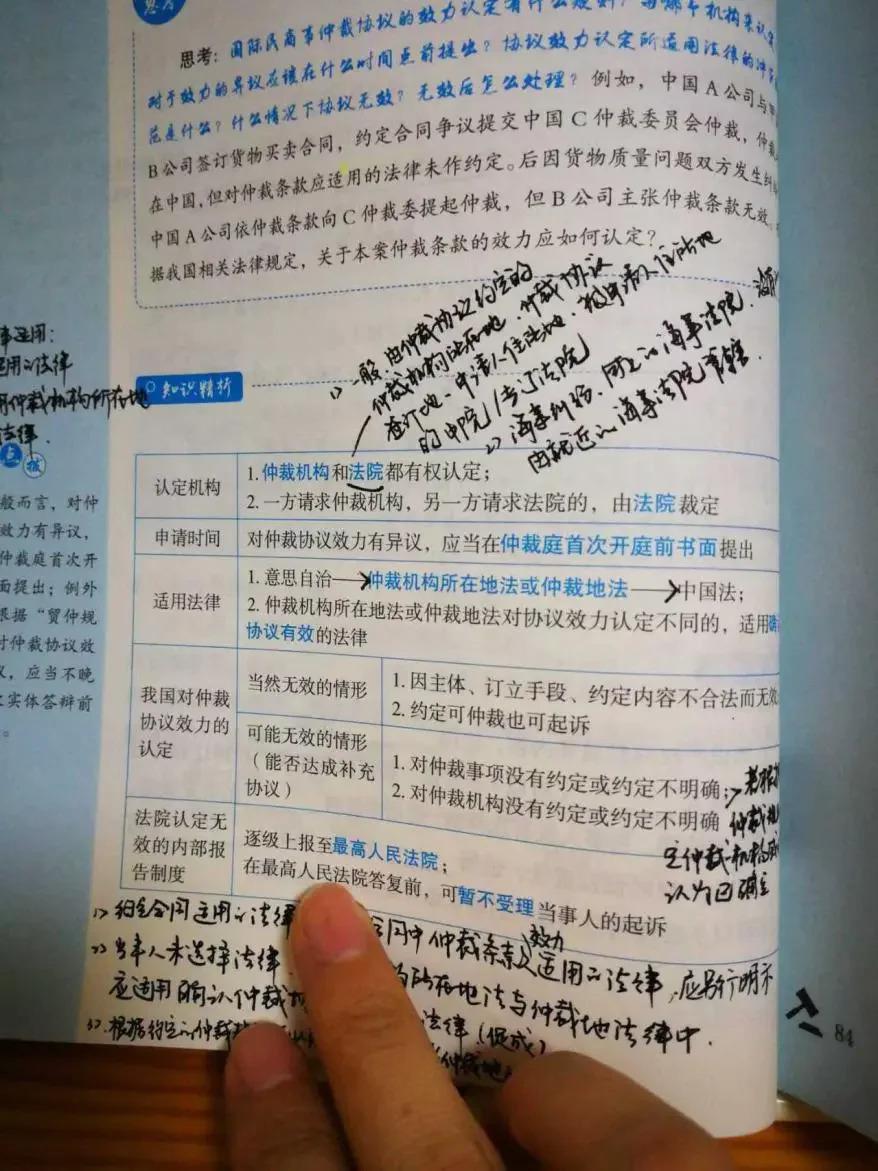 思考：国际民商事仲裁协议的效力认定有什么规则？由哪个机构来认定
对于效力的异议应该在什么时间点前提出？协议效力认定所适用法律的冲突
范是什么？什么情况下协议无效？无效后怎么处理？例如，中国A公司与甲
B公司签订货物买卖合同，约定合同争议提交中国C仲裁委员会仲裁，仲裁
在中国，但对仲裁条款应适用的法律未作约定。后因货物质量问题双方发生纠
中国A公司依仲裁条款向C仲裁委提起仲裁，但B公司主张仲裁条款无效。
据我国相关法律规定，关于本案仲裁条款的效力应如何认定？
1>一般：由仲裁协议约定的
仲裁机构所在地、仲裁协议
签订地、申请人住所地、被申请人住所地
的中院/专门法院
2>海事纠纷，同上的海事法院，没有
由就近的海事法院管辖．
律适用：
适用的法律
用仲裁机构所在地
法律．
点拨
般而言，对仲
效力有异议，
仲裁庭首次开
面提出；例外
根据“贸仲规
对仲裁协议效
议，应当不晚
次实体答辩前
。
知识精析
认定机构
1.仲裁机构和法院都有权认定；
2.一方请求仲裁机构，另一方请求法院的，由法院裁定
申请时间
对仲裁协议效力有异议，应当在仲裁庭首次开庭前书面提出
适用法律
1.意思自治→仲裁机构所在地法或仲裁地法→中国法；
2.仲裁机构所在地法或仲裁地法对协议效力认定不同的，适用确
协议有效的法律
我国对仲裁
协议效力的
认定
当然无效的情形
1.因主体、订立手段、约定内容不合法而无效
2.约定可仲裁也可起诉
可能无效的情形
（能否达成补充
协议）
1.对仲裁事项没有约定或约定不明确；
2.对仲裁机构没有约定或约定不明确
法院认定无
效的内部报
告制度
逐级上报至最高人民法院；
在最高人民法院答复前，可暂不受理当事人的起诉
仲裁
定仲裁机构
认为已确定
1>约定合同适用的法律 合同中仲裁条款效力适用的法律，应另行明示
2>当事人未选择法律
应适用确认仲裁 所在地法与仲裁地法律中．
3>根据约定的仲裁 法律（促成）
仲裁地
84